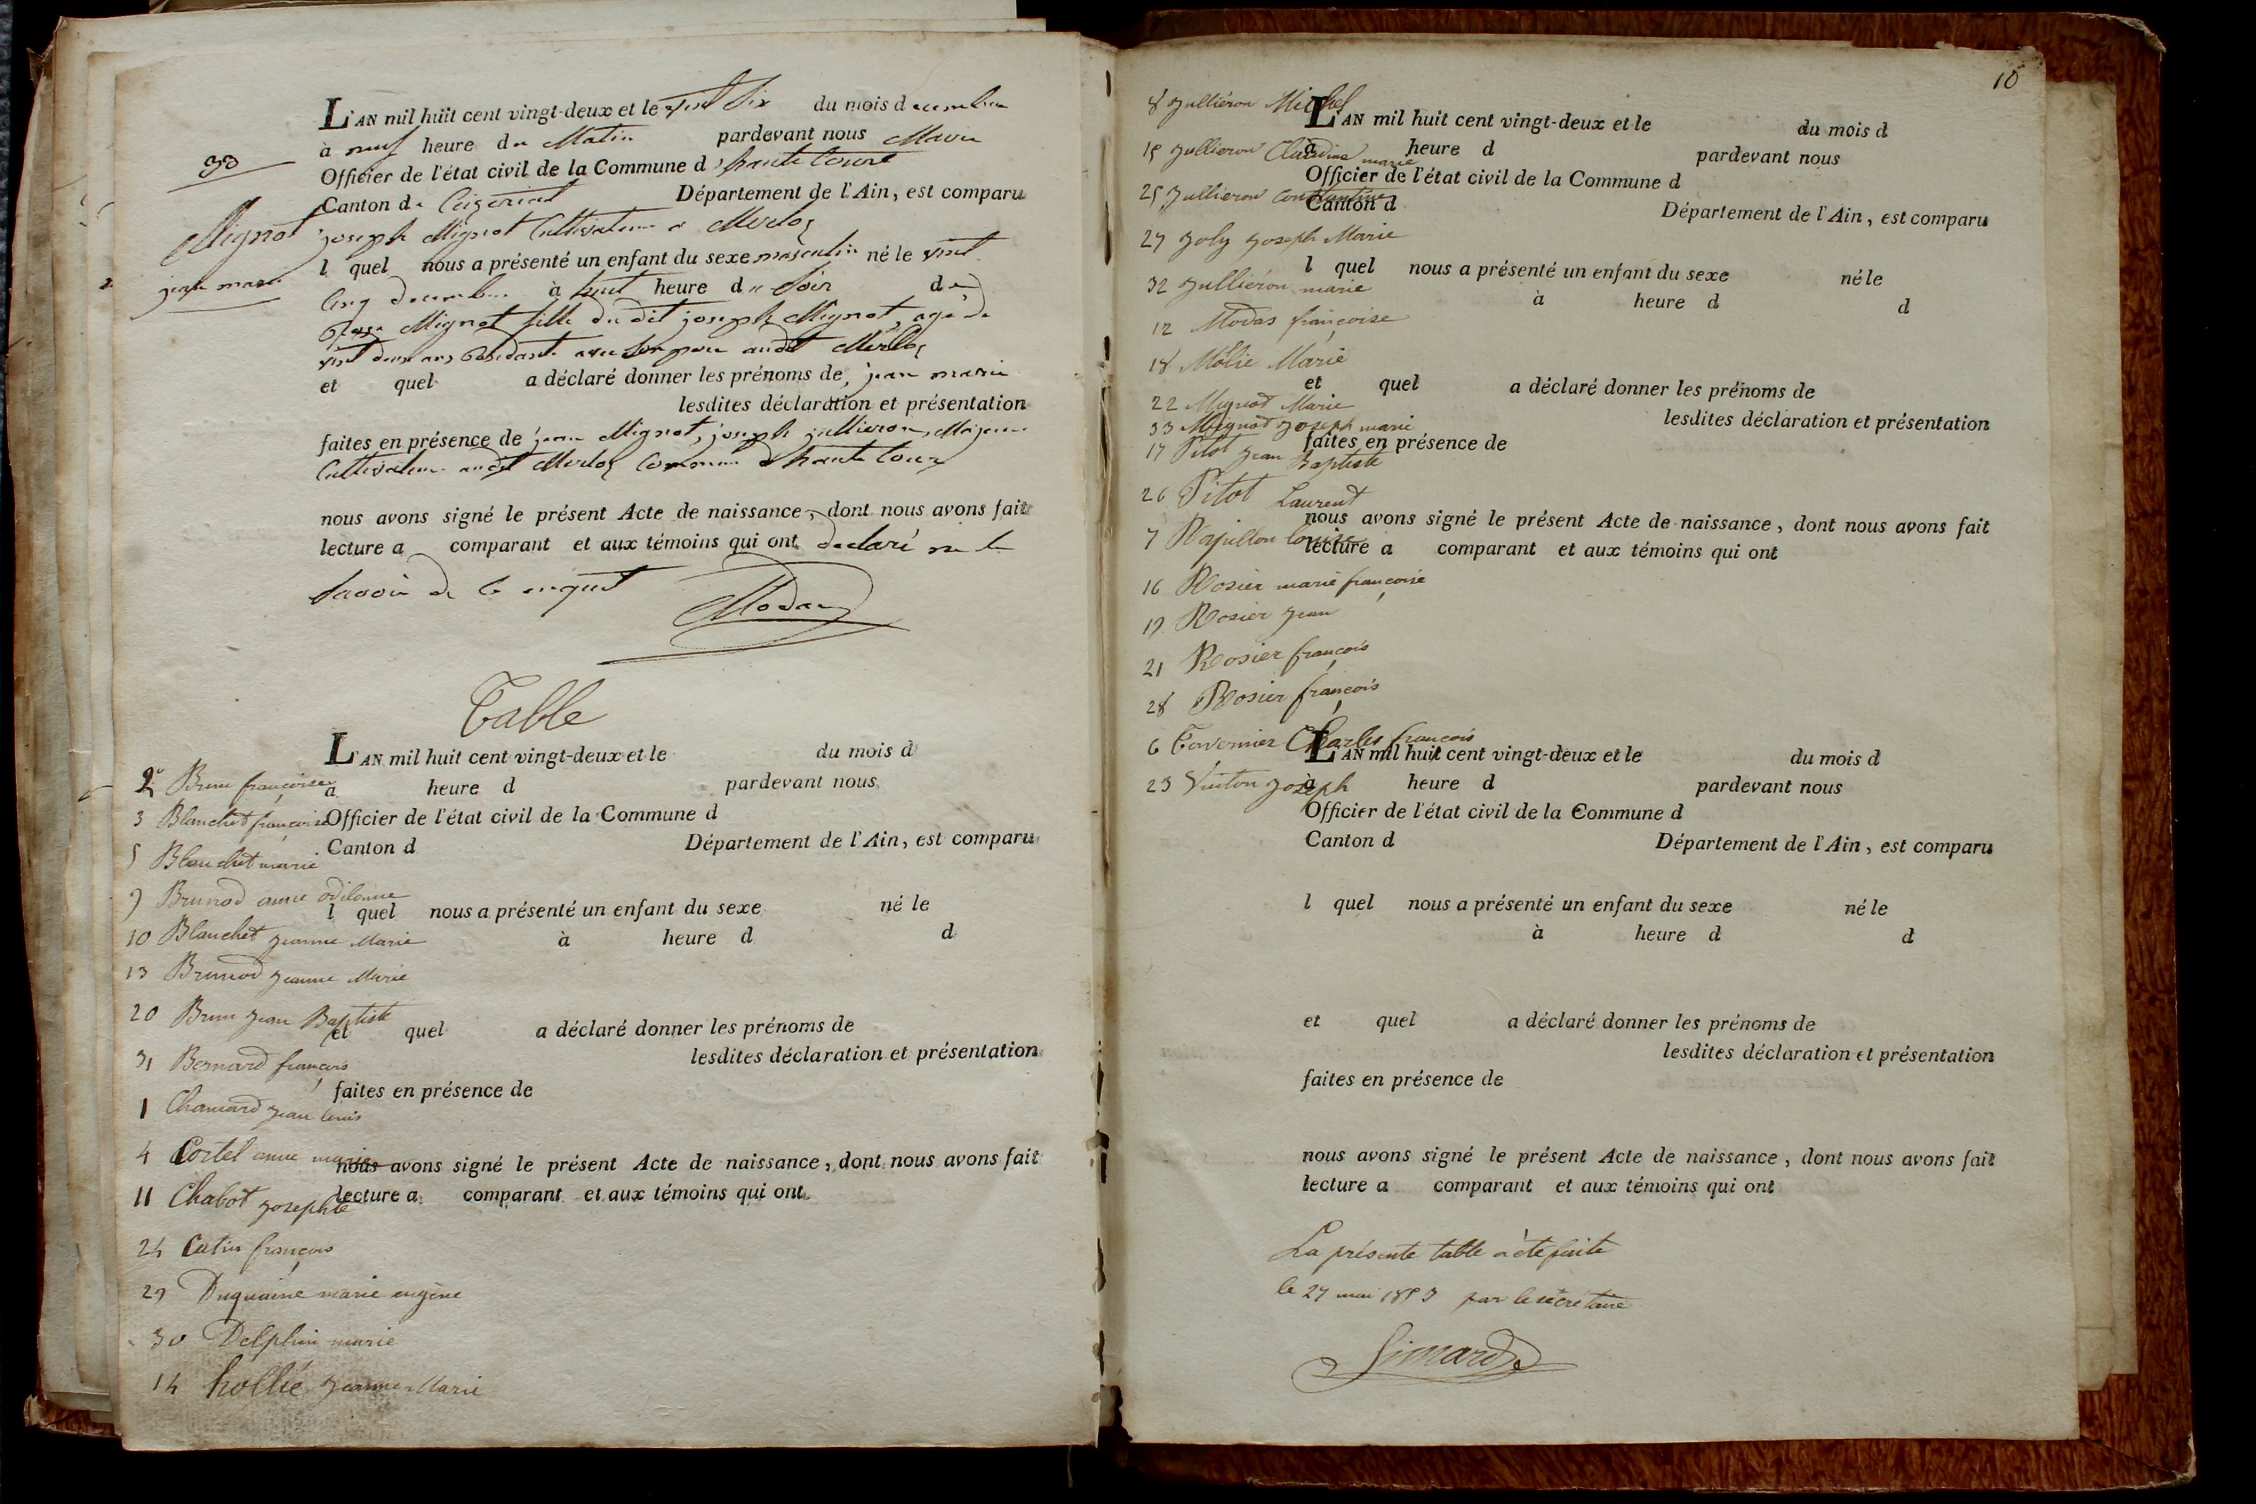 33
Mignot
jean marie
L'AN mil huit cent vingt-deux et le vint Six du mois d ecembre
à neuf heure du Matin pardevant nous Maire
Officier de l'état civil de la Commune d hautecourt
Canton de Ceizeriat Département de l'Ain, est comparu
joseph Mignot Cultivateur a Merlos
l quel nous a présenté un enfant du sexe masculin né le vint
Cinq decembre à huit heure du Soir de
Mignot fille du dit joseph Mignot, agé de
vint deux ans avec Son pere audit Merlos
et quel a déclaré donner les prénoms de, jean marie
lesdites déclaration et présentation
faites en présence de jean Mignot, joseph jullieron, Majeurs
Cultivateur audit Merlos Commune d'haute Cour
nous avons signé le présent Acte de naissance, dont nous avons fait
lecture a comparant et aux témoins qui ont declaré ne le
Savoir de ce enquit
Modas
Table
L'AN mil huit cent vingt-deux et le du mois d
à heure d pardevant nous
Officier de l'état civil de la Commune d
Canton d Département de l'Ain, est comparu
l quel nous a présenté un enfant du sexe né le
à heure d d
et quel a déclaré donner les prénoms de
lesdites déclaration et présentation
faites en présence de
nous avons signé le présent Acte de naissance, dont nous avons fait
lecture a comparant et aux témoins qui ont
2 Brun françoise
3 Blanchet françoise
5 Blanchet marie
9 Brunod anne odilonne
10 Blanchet jeanne Marie
13 Brunod jeanne Marie
20 Brun jean Baptiste
31 Bernard françois
1 Chanard jean louis
4 Cortel anne marie
11 Chabot josephte
24 Catin françois
29 Duquaine marie eugène
30 Delphin marie
14 hollié jeanne Marie
10
8 Jullièron Michel
15 Jullieron Claudine marie
25 Jullieron Constantine
27 Joly joseph Marie
32 Jullièron marie
12 Modas françoise
18 Mölie Marie
22 Mignod Marie
33 Mignod joseph marie
17 Pitot jean Baptiste
26 Pitot Laurent
7 Papillon louise
16 Rosier marie françoise
19 Rosier jean
21 Rosier françois
28 Rosier françois
6 Tavernier Charles françois
23 Vuiton joseph
L'AN mil huit cent vingt-deux et le du mois d
à heure d pardevant nous
Officier de l'état civil de la Commune d
Canton d Département de l'Ain, est comparu
l quel nous a présenté un enfant du sexe né le
à heure d d
et quel a déclaré donner les prénoms de
lesdites déclaration et présentation
faites en présence de
nous avons signé le présent Acte de naissance, dont nous avons fait
lecture a comparant et aux témoins qui ont
L'AN mil huit cent vingt-deux et le du mois d
à heure d pardevant nous
Officier de l'état civil de la Commune d
Canton d Département de l'Ain, est comparu
l quel nous a présenté un enfant du sexe né le
à heure d d
et quel a déclaré donner les prénoms de
lesdites déclaration et présentation
faites en présence de
nous avons signé le présent Acte de naissance, dont nous avons fait
lecture a comparant et aux témoins qui ont
La présente table a été faite
le 27 mai 1853 par le secretaire
Simard